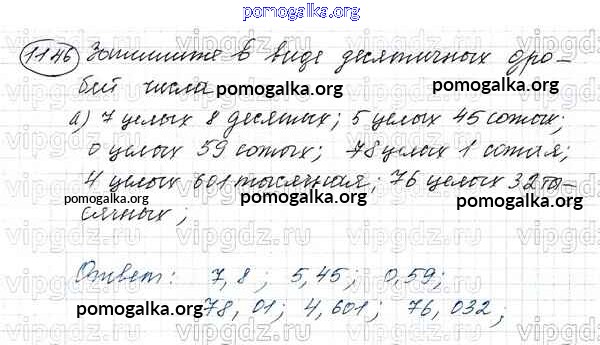 pomogalka.org
1146 Запишите в виде десятичных дро-
бей числа
pomogalka.org pomogalka.org
а) 7 целых 8 десятых; 5 целых 45 сотых;
0 целых 59 сотых; 78 целых 1 сотая;
4 целых 601 тысячная; 76 целых 32 ты-
pomogalka.org pomogalka.org
сячных;
Ответ: 7,8; 5,45; 0,59;
pomogalka.org pomogalka.org
78,01; 4,601; 76,032;
vipgdz.ru